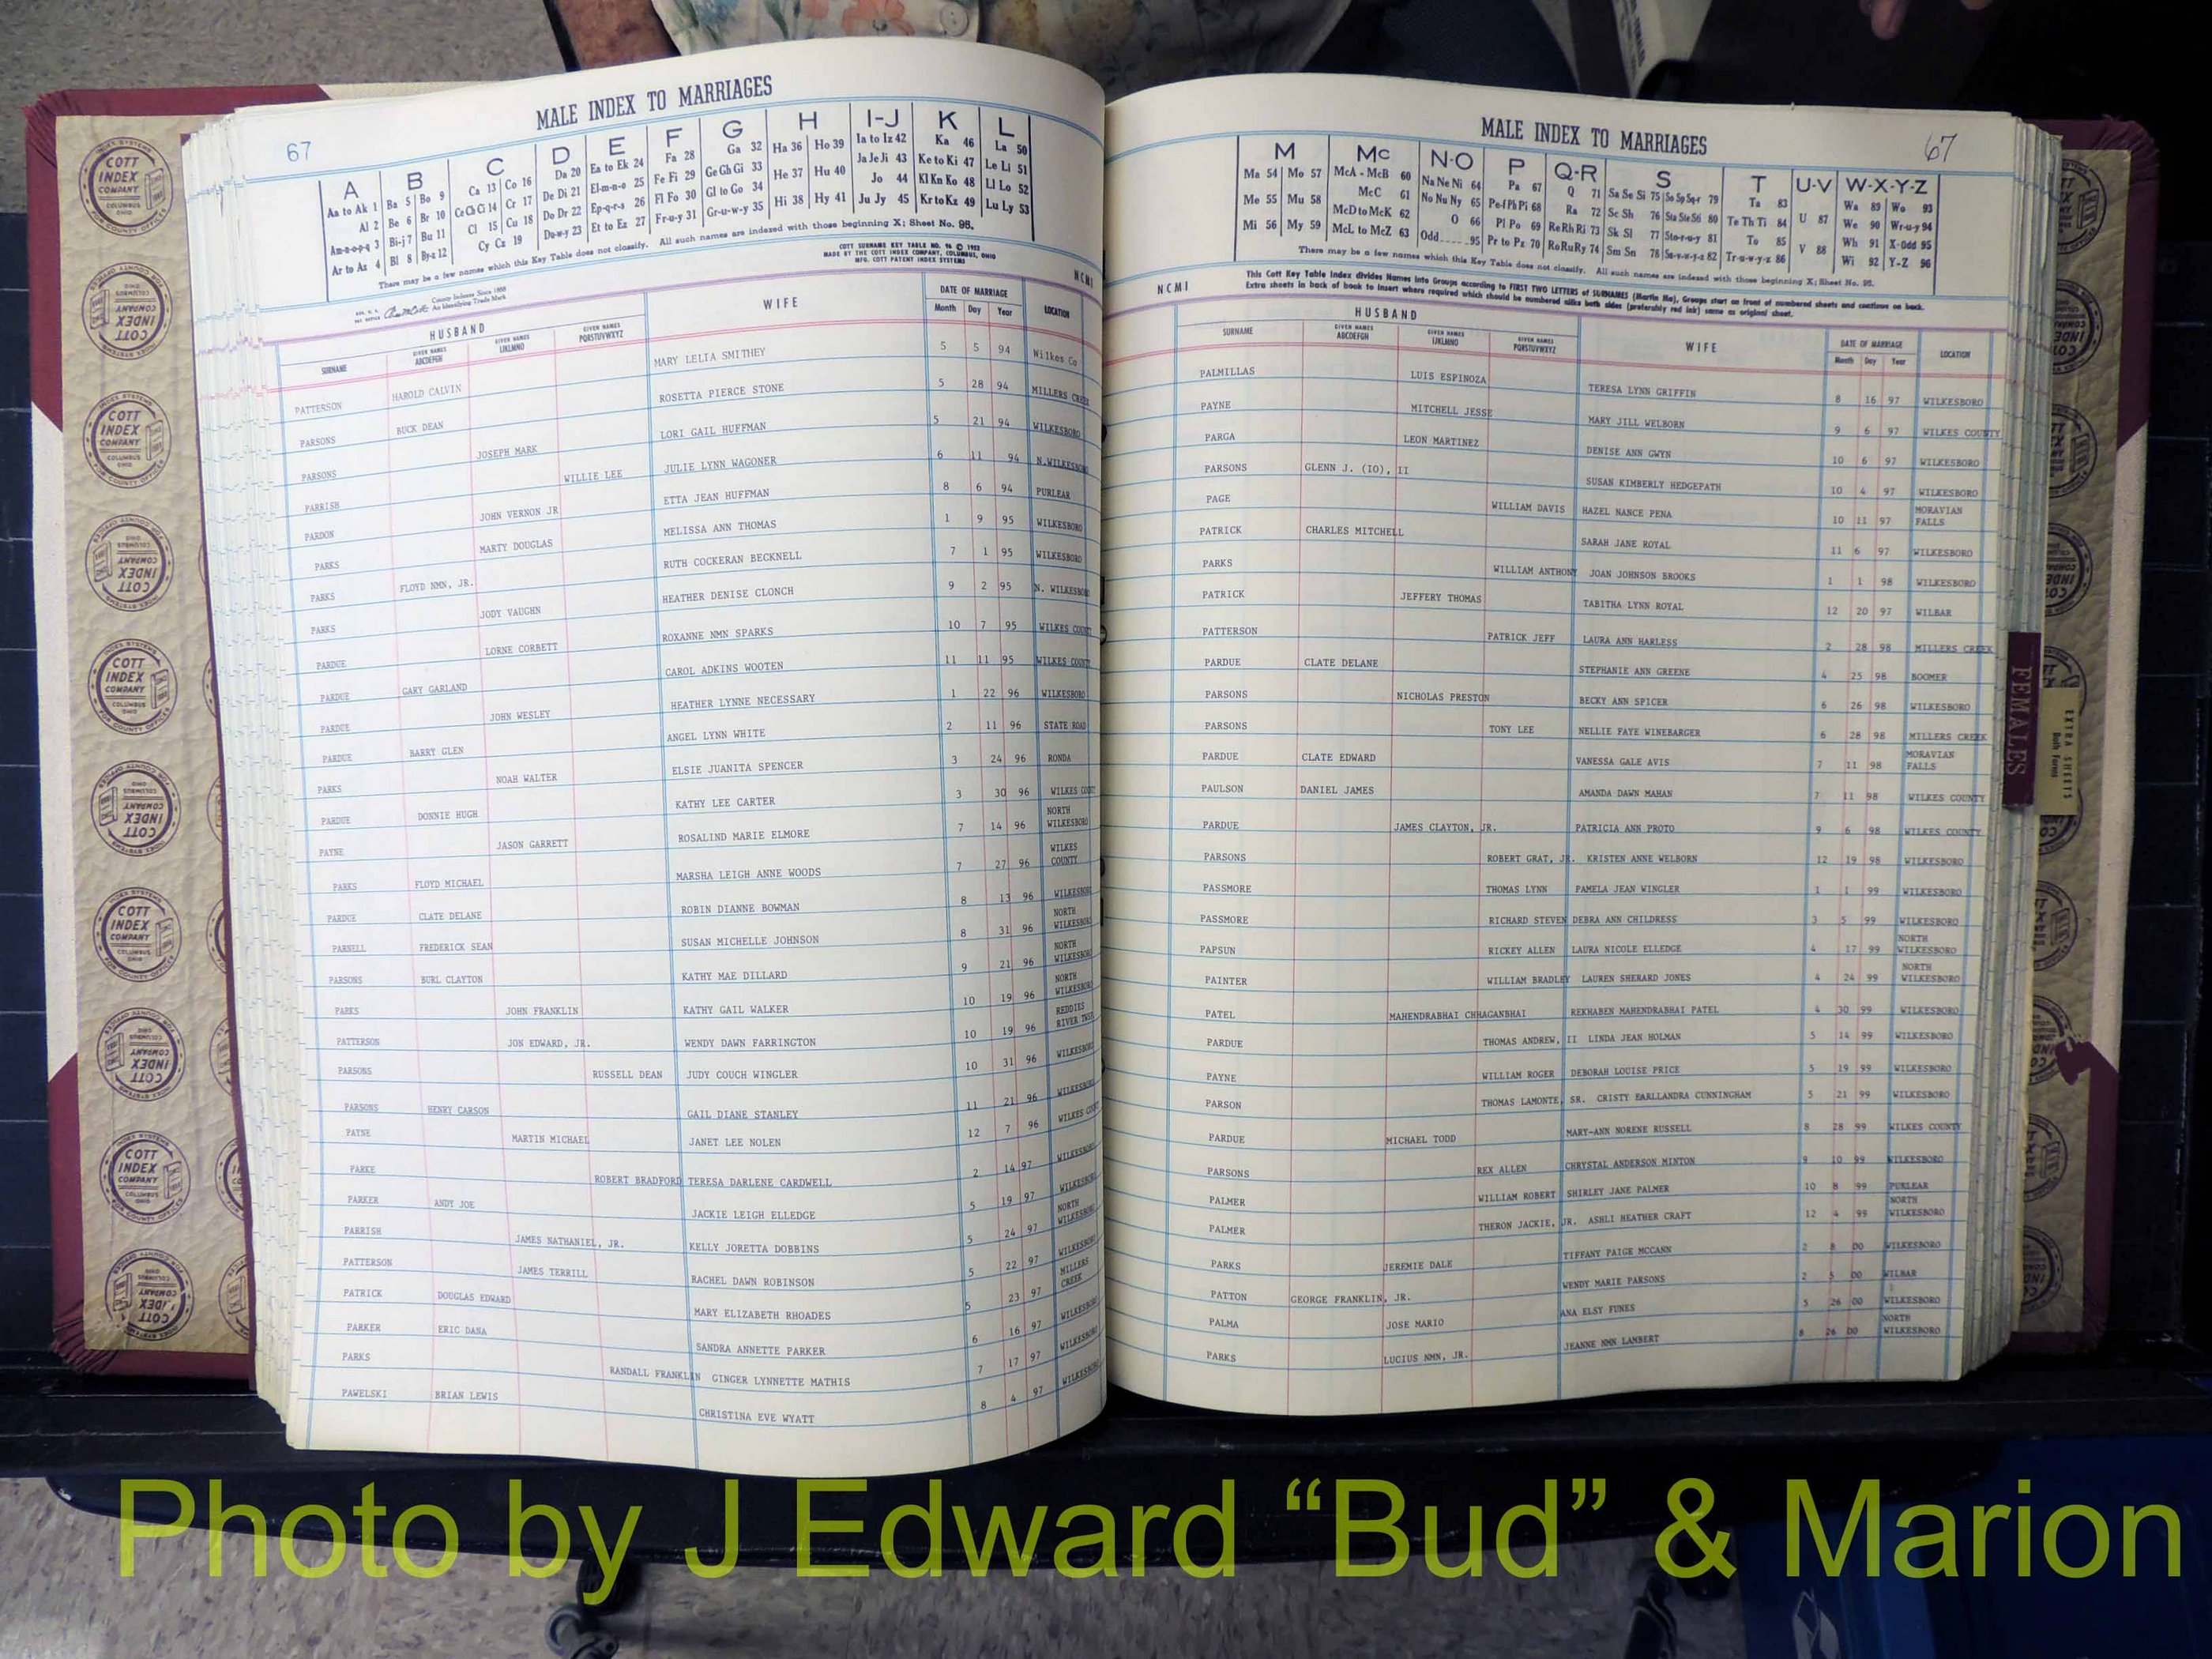 MALE INDEX TO MARRIAGES
67
A B C D E F G H I-J K L
Aa to Ak 1 Ba 5 Bo 9 Ca 13 Co 16 Da 20 Ea to Ek 24 Fa 28 Ga 32 Ha 36 Ho 39 Ia to Iz 42 Ka 46 La 50
Al 2 Be 6 Br 10 Ce Ch Ci 14 Cr 17 De Di 21 El-m-n-o 25 Fe Fi 29 Ge Gh Gi 33 He 37 Hu 40 Ja Je Ji 43 Ke to Ki 47 Le Li 51
Am-n-o-p-q 3 Bi-j 7 Bu 11 Cl 15 Cu 18 Do Dr 22 Ep-q-r-s 26 Fl Fo 30 Gl to Go 34 Hi 38 Hy 41 Jo 44 Kl Kn Ko 48 Ll Lo 52
Ar to Az 4 Bl 8 By-z 12 Cy Cz 19 Du-w-y 23 Et to Ez 27 Fr-u-y 31 Gr-u-w-y 35 Ju Jy 45 Kr to Kz 49 Lu Ly 53
There may be a few names which this Key Table does not classify. All such names are indexed with those beginning X; Sheet No. 95.
COTT SURNAME KEY TABLE NO. 96 © 1953
MADE BY THE COTT INDEX COMPANY, COLUMBUS, OHIO
MFG. COTT PATENT INDEX SYSTEMS
County Indexes Since 1888
An Identifying Trade Mark
NCMI
HUSBAND WIFE DATE OF MARRIAGE LOCATION
SURNAME GIVEN NAMES ABCDEFGH GIVEN NAMES IJKLMNO GIVEN NAMES PQRSTUVWXYZ Month Day Year
PATTERSON HAROLD CALVIN MARY LELIA SMITHEY 5 5 94 Wilkes Co
PARSONS BUCK DEAN ROSETTA PIERCE STONE 5 28 94 MILLERS CREEK
PARSONS JOSEPH MARK LORI GAIL HUFFMAN 5 21 94 WILKESBORO
PARRISH WILLIE LEE JULIE LYNN WAGONER 6 11 94 N.WILKESBORO
PARDON JOHN VERNON JR ETTA JEAN HUFFMAN 8 6 94 PURLEAR
PARKS MARTY DOUGLAS MELISSA ANN THOMAS 1 9 95 WILKESBORO
PARKS FLOYD NMN, JR. RUTH COCKERAN BECKNELL 7 1 95 WILKESBORO
PARKS JODY VAUGHN HEATHER DENISE CLONCH 9 2 95 N. WILKESBORO
PARDUE LORNE CORBETT ROXANNE NMN SPARKS 10 7 95 WILKES COUNTY
PARDUE GARY GARLAND CAROL ADKINS WOOTEN 11 11 95 WILKES COUNTY
PARDUE JOHN WESLEY HEATHER LYNNE NECESSARY 1 22 96 WILKESBORO
PARDUE BARRY GLEN ANGEL LYNN WHITE 2 11 96 STATE ROAD
PARKS NOAH WALTER ELSIE JUANITA SPENCER 3 24 96 RONDA
PARDUE DONNIE HUGH KATHY LEE CARTER 3 30 96 WILKES COUNTY
PAYNE JASON GARRETT ROSALIND MARIE ELMORE 7 14 96 NORTH WILKESBORO
PARKS FLOYD MICHAEL MARSHA LEIGH ANNE WOODS 7 27 96 WILKES COUNTY
PARDUE CLATE DELANE ROBIN DIANNE BOWMAN 8 13 96 WILKESBORO
PARNELL FREDERICK SEAN SUSAN MICHELLE JOHNSON 8 31 96 NORTH WILKESBORO
PARSONS BURL CLAYTON KATHY MAE DILLARD 9 21 96 NORTH WILKESBORO
PARKS JOHN FRANKLIN KATHY GAIL WALKER 10 19 96 NORTH WILKESBORO
PATTERSON JON EDWARD, JR. WENDY DAWN FARRINGTON 10 19 96 REDDIES RIVER TWSP
PARSONS RUSSELL DEAN JUDY COUCH WINGLER 10 31 96 WILKESBORO
PARSONS HENRY CARSON GAIL DIANE STANLEY 11 21 96 WILKESBORO
PAYNE MARTIN MICHAEL JANET LEE NOLEN 12 7 96 WILKES COUNTY
PARKE ROBERT BRADFORD TERESA DARLENE CARDWELL 2 14 97 WILKESBORO
PARKER ANDY JOE JACKIE LEIGH ELLEDGE 5 19 97 WILKESBORO
PARRISH JAMES NATHANIEL, JR. KELLY JORETTA DOBBINS 5 24 97 NORTH WILKESBORO
PATTERSON JAMES TERRILL RACHEL DAWN ROBINSON 5 22 97 WILKESBORO
PATRICK DOUGLAS EDWARD MARY ELIZABETH RHOADES 5 23 97 MILLERS CREEK
PARKER ERIC DANA SANDRA ANNETTE PARKER 6 16 97 WILKESBORO
PARKS RANDALL FRANKLIN GINGER LYNNETTE MATHIS 7 17 97 WILKESBORO
PAWELSKI BRIAN LEWIS CHRISTINA EVE WYATT 8 4 97 WILKESBORO
MALE INDEX TO MARRIAGES
67
M Mc N-O P Q-R S T U-V W-X-Y-Z
Ma 54 Mo 57 McA - McB 60 Na Ne Ni 64 Pa 67 Q 71 Sa Se Si 75 So Sp Sq-r 79 Ta 83 U 87 Wa 89 Wo 93
Me 55 Mu 58 McC 61 No Nu Ny 65 Pe-f Ph Pi 68 Ra 72 Sc Sh 76 Sta Ste Sti 80 Te Th Ti 84 We 90 Wr-u-y 94
Mi 56 My 59 McD to McK 62 O 66 Pl Po 69 Re Rh Ri 73 Sk Sl 77 Sto-r-u-y 81 To 85 V 88 Wh 91 X-Odd 95
McL to McZ 63 Odd 95 Pr to Pz 70 Ro Ru Ry 74 Sm Sn 78 Su-v-w-y-z 82 Tr-u-w-y-z 86 Wi 92 Y-Z 96
There may be a few names which this Key Table does not classify. All such names are indexed with those beginning X; Sheet No. 95.
NCMI
This Cott Key Table Index divides Names into Groups according to FIRST TWO LETTERS of SURNAMES (Martin Ma), Groups start on front of numbered sheets and continue on back.
Extra sheets in back of book to insert where required which should be numbered alike both sides (preferably red ink) same as original sheet.
HUSBAND WIFE DATE OF MARRIAGE LOCATION
SURNAME GIVEN NAMES ABCDEFGH GIVEN NAMES IJKLMNO GIVEN NAMES PQRSTUVWXYZ Month Day Year
PALMILLAS LUIS ESPINOZA TERESA LYNN GRIFFIN 8 16 97 WILKESBORO
PAYNE MITCHELL JESSE MARY JILL WELBORN 9 6 97 WILKES COUNTY
PARGA LEON MARTINEZ DENISE ANN GWYN 10 6 97 WILKESBORO
PARSONS GLENN J. (IO), II SUSAN KIMBERLY HEDGEPATH 10 4 97 WILKESBORO
PAGE WILLIAM DAVIS HAZEL NANCE PENA 10 11 97 MORAVIAN FALLS
PATRICK CHARLES MITCHELL SARAH JANE ROYAL 11 6 97 WILKESBORO
PARKS WILLIAM ANTHONY JOAN JOHNSON BROOKS 1 1 98 WILKESBORO
PATRICK JEFFERY THOMAS TABITHA LYNN ROYAL 12 20 97 WILBAR
PATTERSON PATRICK JEFF LAURA ANN HARLESS 2 28 98 MILLERS CREEK
PARDUE CLATE DELANE STEPHANIE ANN GREENE 4 25 98 BOOMER
PARSONS NICHOLAS PRESTON BECKY ANN SPICER 6 26 98 WILKESBORO
PARSONS TONY LEE NELLIE FAYE WINEBARGER 6 28 98 MILLERS CREEK
PARDUE CLATE EDWARD VANESSA GALE AVIS 7 11 98 MORAVIAN FALLS
PAULSON DANIEL JAMES AMANDA DAWN MAHAN 7 11 98 WILKES COUNTY
PARDUE JAMES CLAYTON, JR. PATRICIA ANN PROTO 9 6 98 WILKES COUNTY
PARSONS ROBERT GRAT, JR. KRISTEN ANNE WELBORN 12 19 98 WILKESBORO
PASSMORE THOMAS LYNN PAMELA JEAN WINGLER 1 1 99 WILKESBORO
PASSMORE RICHARD STEVEN DEBRA ANN CHILDRESS 3 5 99 WILKESBORO
PAPSUN RICKEY ALLEN LAURA NICOLE ELLEDGE 4 17 99 NORTH WILKESBORO
PAINTER WILLIAM BRADLEY LAUREN SHERARD JONES 4 24 99 NORTH WILKESBORO
PATEL MAHENDRABHAI CHHAGANBHAI REKHABEN MAHENDRABHAI PATEL 4 30 99 WILKESBORO
PARDUE THOMAS ANDREW, II LINDA JEAN HOLMAN 5 14 99 WILKESBORO
PAYNE WILLIAM ROGER DEBORAH LOUISE PRICE 5 19 99 WILKESBORO
PARSON THOMAS LAMONTE, SR. CRISTY EARLLANDRA CUNNINGHAM 5 21 99 WILKESBORO
PARDUE MICHAEL TODD MARY-ANN NORENE RUSSELL 8 28 99 WILKES COUNTY
PARSONS REX ALLEN CHRYSTAL ANDERSON MINTON 9 10 99 WILKESBORO
PALMER WILLIAM ROBERT SHIRLEY JANE PALMER 10 8 99 PURLEAR
PALMER THERON JACKIE, JR. ASHLI HEATHER CRAFT 12 4 99 NORTH WILKESBORO
PARKS JEREMIE DALE TIFFANY PAIGE MCCANN 2 8 00 WILKESBORO
PATTON GEORGE FRANKLIN, JR. WENDY MARIE PARSONS 2 5 00 WILBAR
PALMA JOSE MARIO ANA ELSY FUNES 5 26 00 WILKESBORO
PARKS LUCIUS NMN, JR. JEANNE NMN LAMBERT 8 26 00 NORTH WILKESBORO
FEMALES
EXTRA SHEETS
Both Forms
COTT INDEX COMPANY COLUMBUS OHIO
INDEX SYSTEMS FOR COUNTY OFFICES
Photo by J Edward “Bud” & Marion